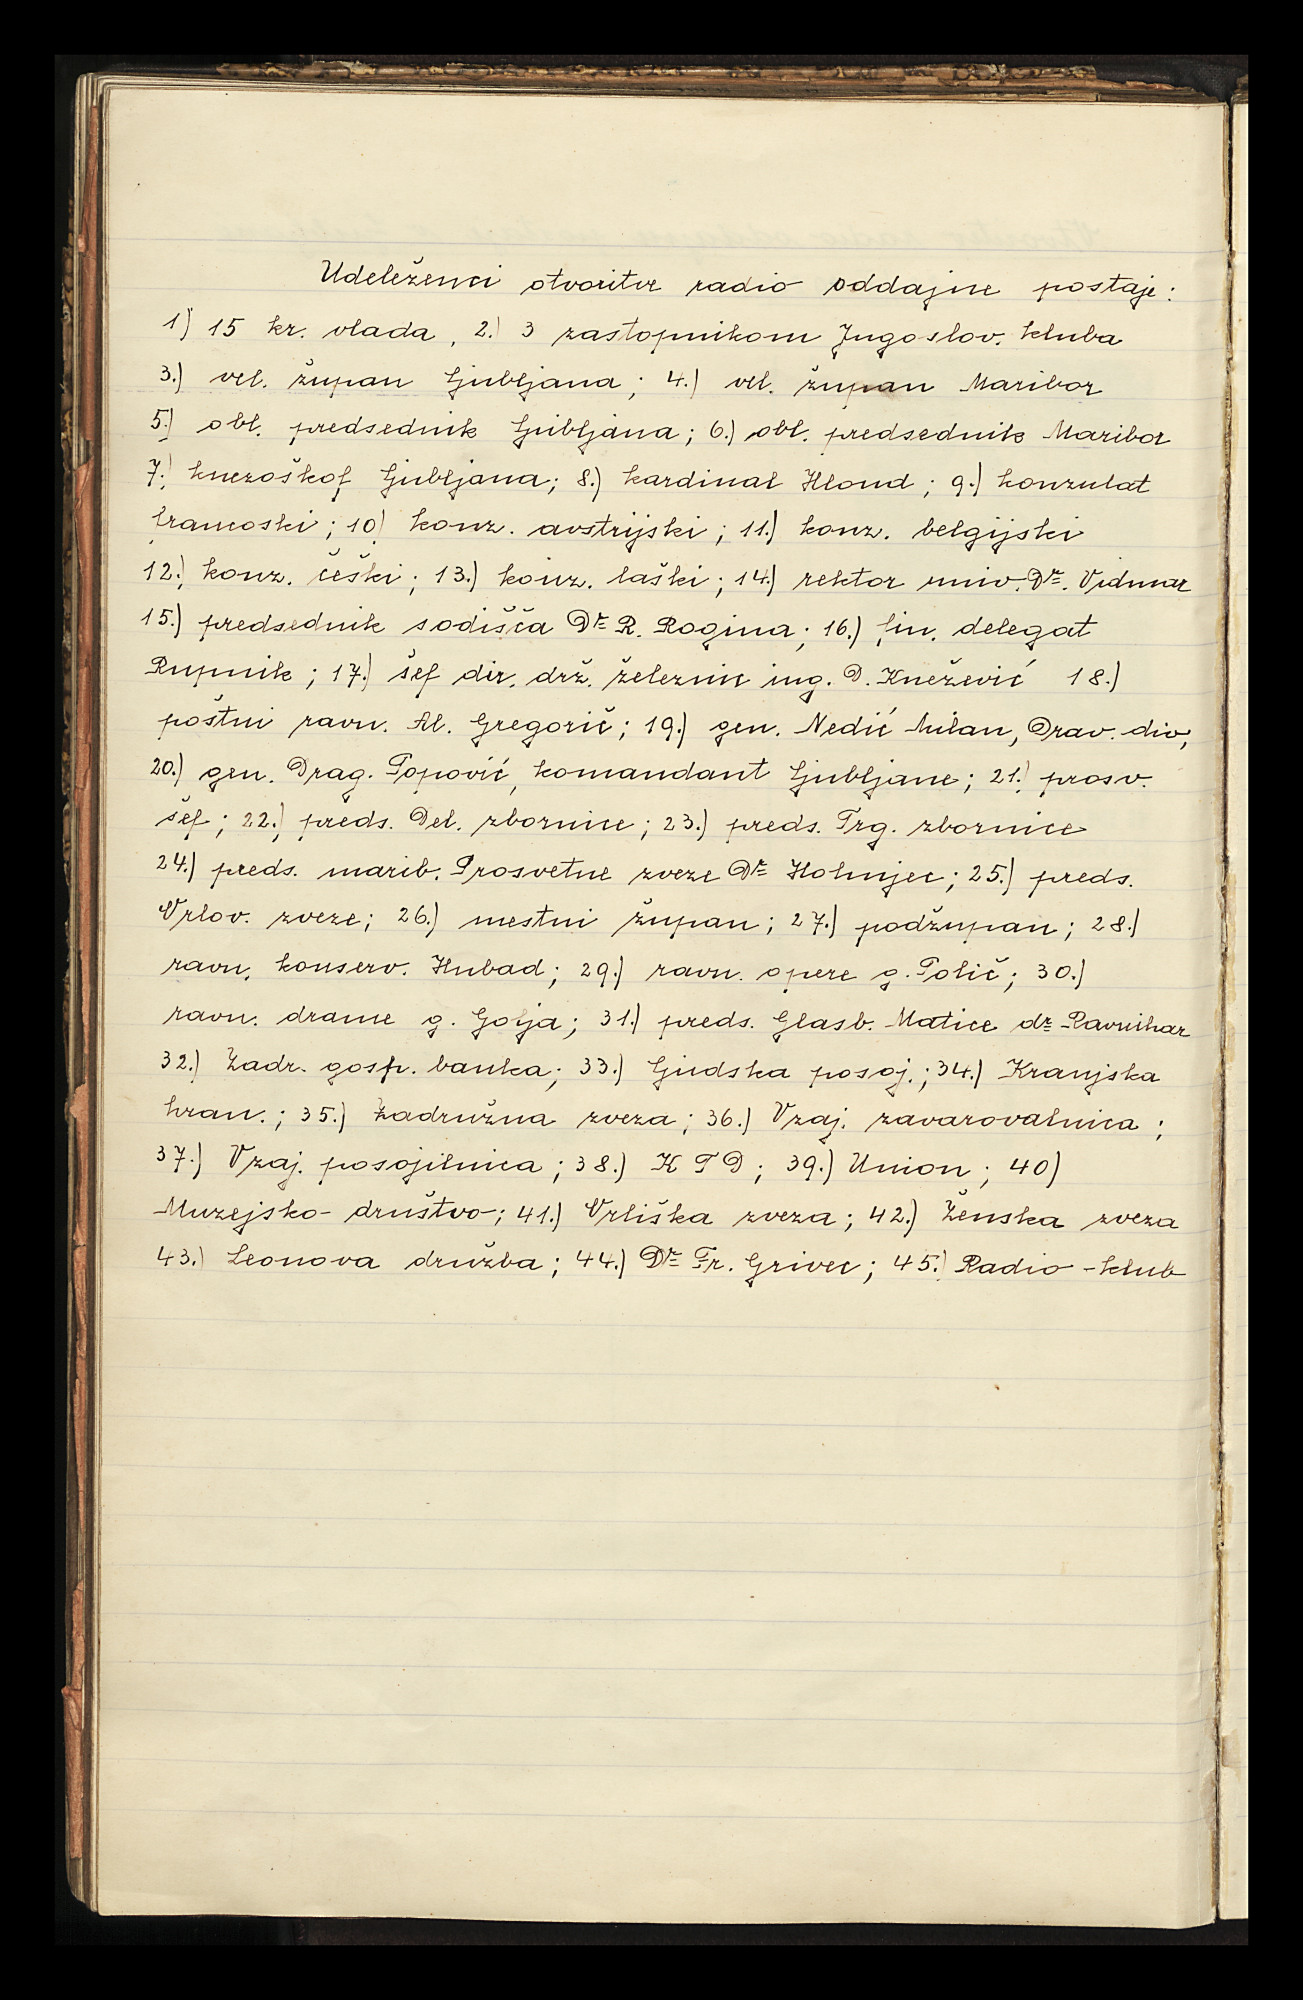 Udeleženci otvoritve radio oddajne postaje:
1) 15 kr. vlada, 2.) 3 zastopnikom Jugoslov. kluba
3.) vel. župan Ljubljana; 4.) vel. župan Maribor
5.) obl. predsednik Ljubljana; 6.) obl. predsednik Maribor
7.) knezoškof Ljubljana; 8.) kardinal Hlond; 9.) konzulat
francoski; 10) konz. avstrijski; 11.) konz. belgijski
12.) konz. češki; 13.) konz. laški; 14.) rektor univ. Dr. Vidmar
15.) predsednik sodišča Dr R. Rogina; 16.) fin. delegat
Rupnik; 17.) šef dir. drž. železnic ing. D. Knežević 18.)
poštni ravn. Al. Gregorič; 19.) gen. Nedić Milan, Drav. div,
20.) gen. Drag. Popović, komandant Ljubljane; 21.) prosv.
šef; 22.) preds. Del. zbornice; 23.) preds. Trg. zbornice
24.) preds. marib. Prosvetne zveze Dr Hohnjec; 25.) preds.
Orlov. zveze; 26.) mestni župan; 27.) podžupan; 28.)
ravn. konserv. Hubad; 29.) ravn. opere g. Polič; 30.)
ravn. drame g. Golja; 31.) preds. Glasb. Matice dr Ravnihar
32.) Zadr. gosp. banka; 33.) Ljudska posoj.; 34.) Kranjska
hran.; 35.) Zadružna zveza; 36.) Vzaj. zavarovalnica;
37.) Vzaj. posojilnica; 38.) K T D; 39.) Union; 40)
Muzejsko-društvo; 41.) Orliška zveza; 42.) Ženska zveza
43.) Leonova družba; 44.) Dr Fr. Grivec; 45.) Radio-klub